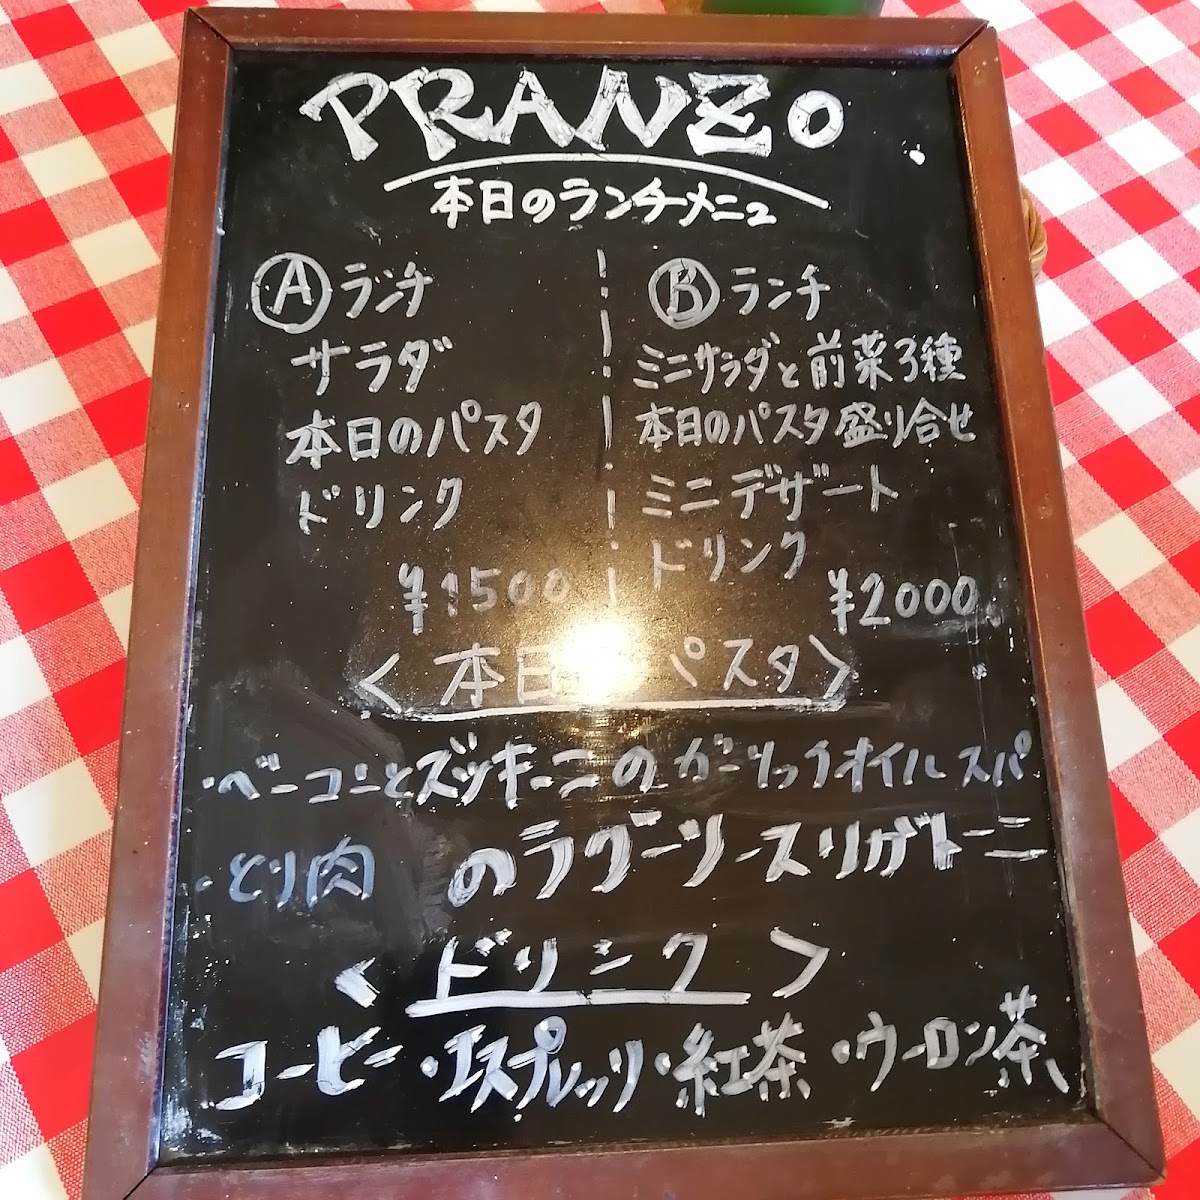 PRANZO
本日のランチメニュ
Ⓐランチ
サラダ
本日のパスタ
ドリンク
¥1500
Ⓑランチ
ミニサラダと前菜3種
本日のパスタ盛り合せ
ミニデザート
ドリンク
¥2000
<本日 パスタ>
・ベーコンとズッキーニのガーリックオイルスパ
・とり肉 のラグーソースリガトーニ
<ドリンク>
コーヒー・エスプレッソ・紅茶・ウーロン茶